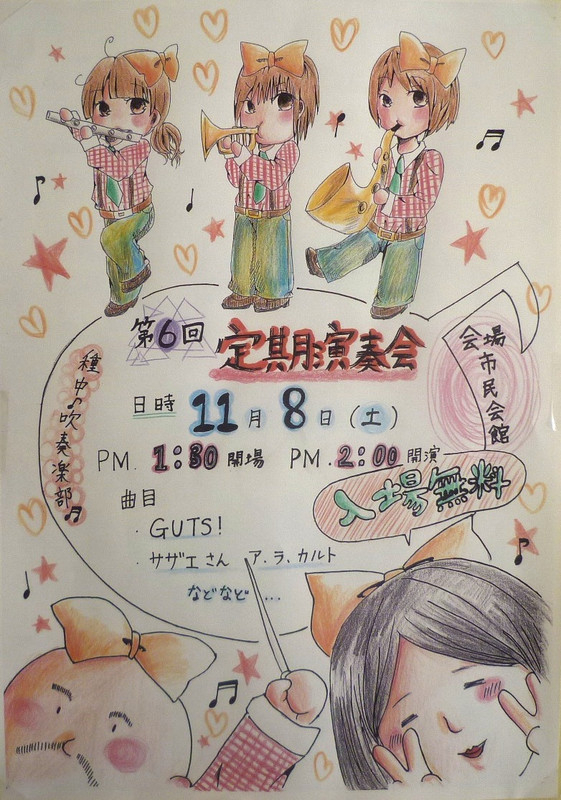 第6回 定期演奏会
種中吹奏楽部
会場
市民会館
日時 11月8日(土)
PM. 1:30 開場 PM. 2:00 開演
入場無料
曲目
・GUTS!
・サザエさん ア・ラ・カルト
などなど...